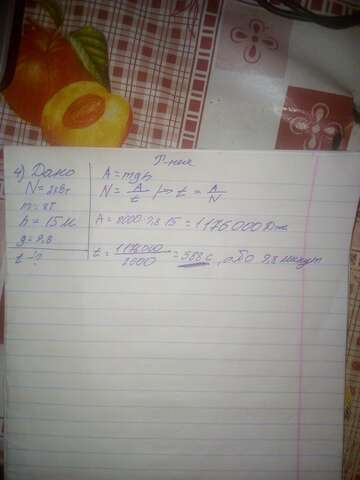 Р-ння
4) Дано
N = 2кВт
m = 8т.
h = 15м.
g = 9.8
t - ?
A = mgh
N = A/t => t = A/N
A = 8000·9,8·15 = 1176000 Дж
t = 1176000/2000 = 588 с, або 9,8 минут